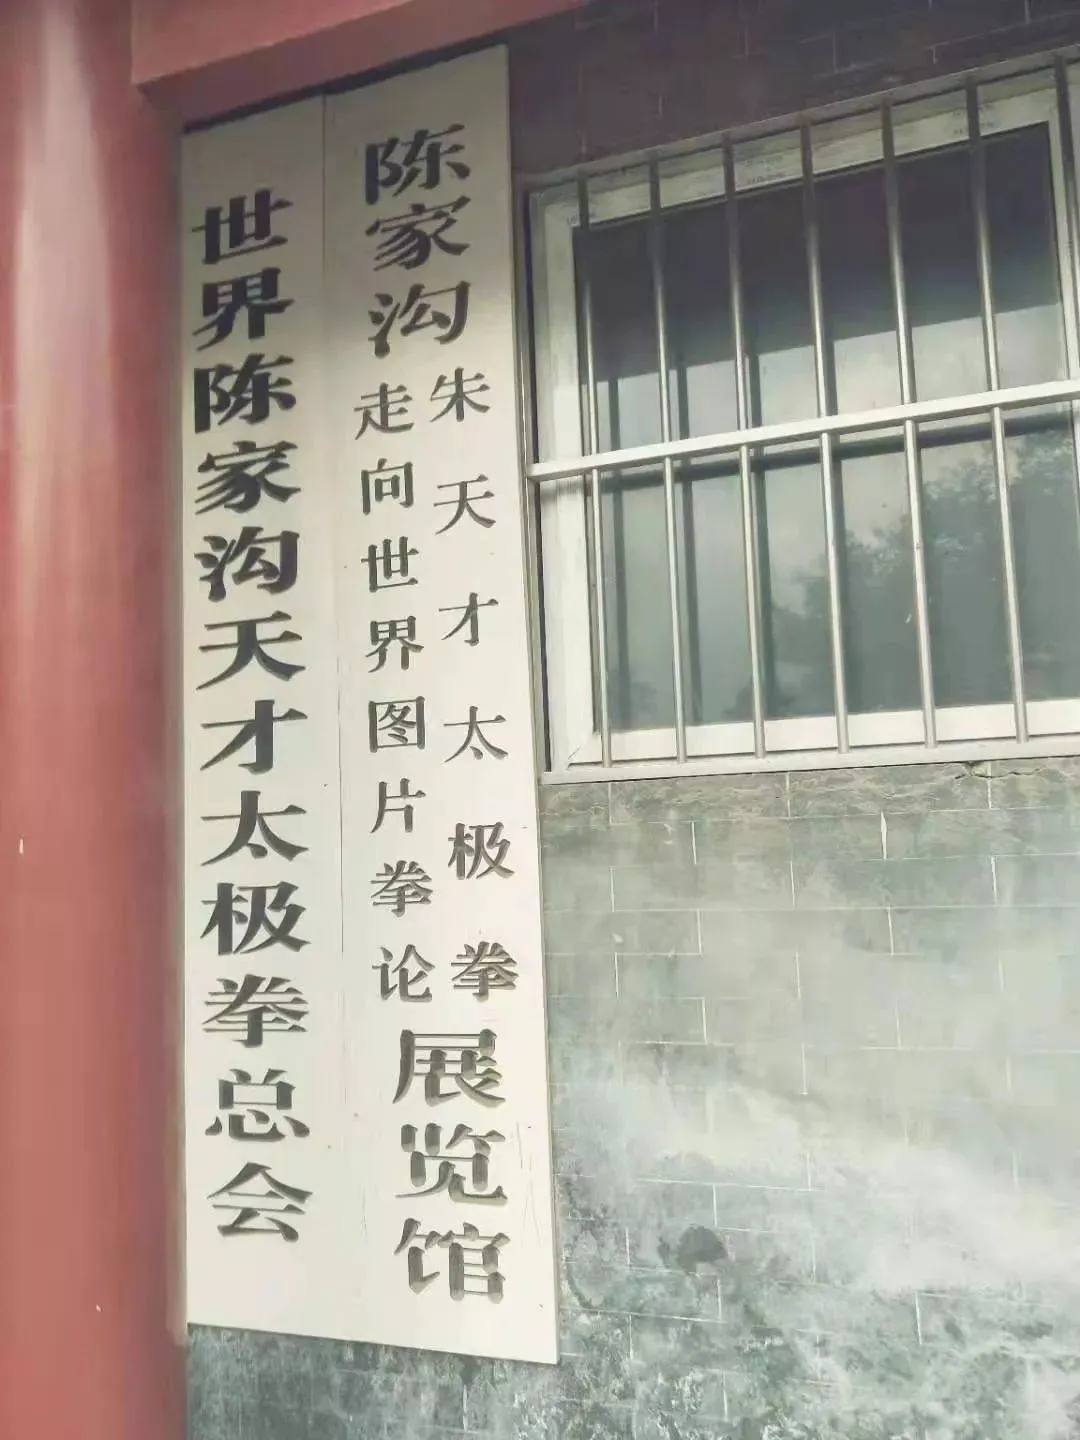 陈家沟
朱天才太极拳
走向世界图片拳论
展览馆
世界陈家沟天才太极拳总会